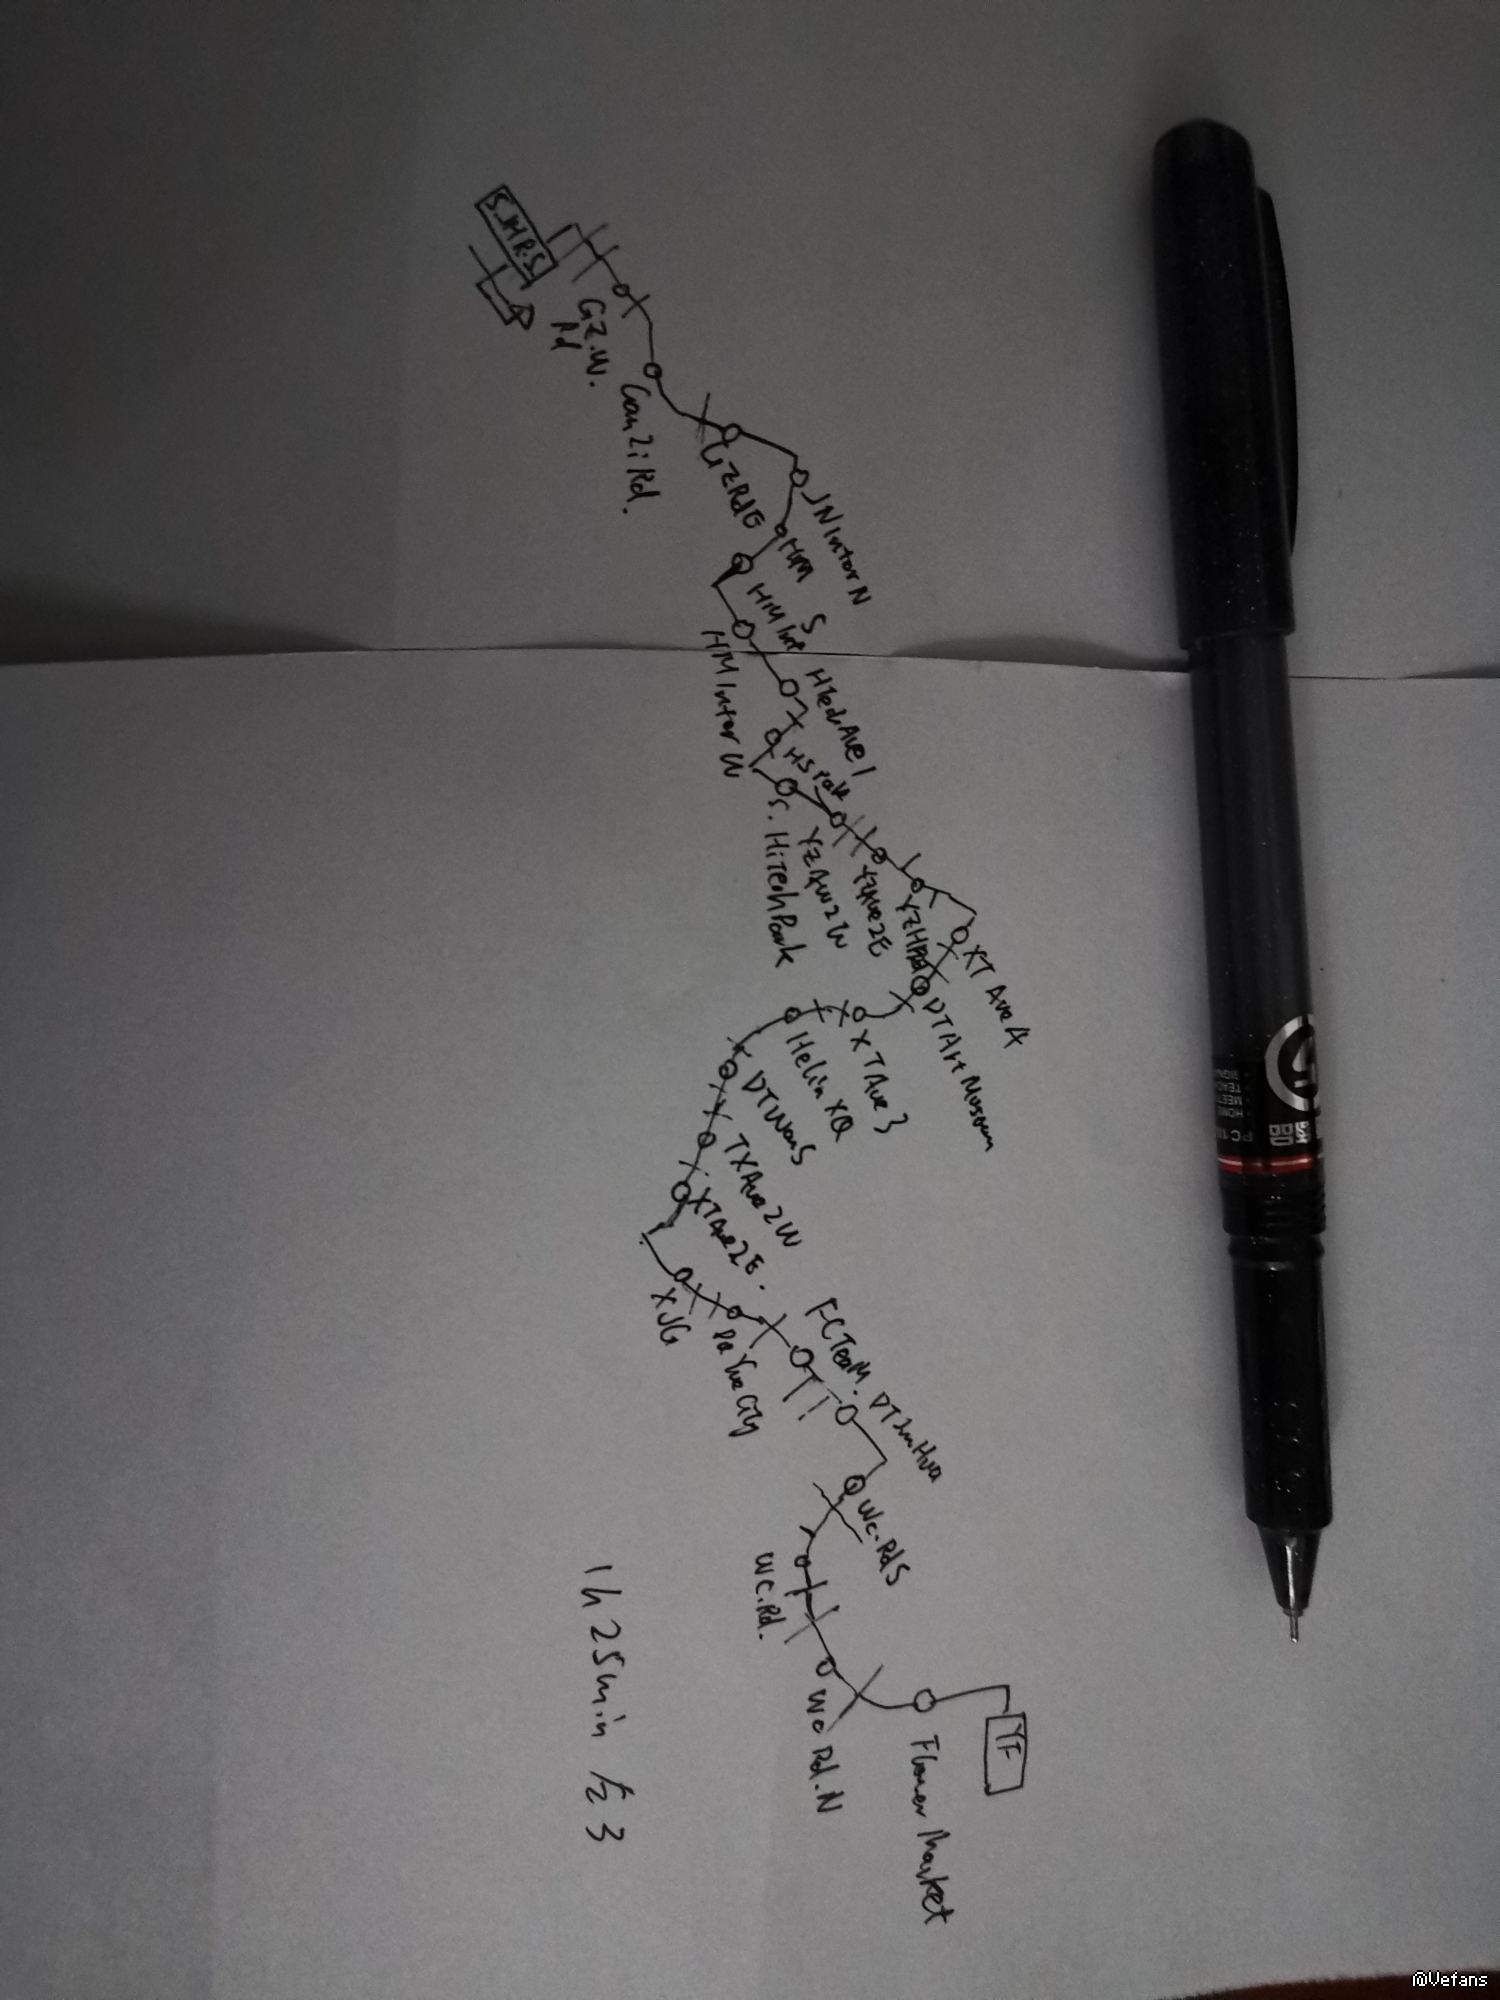 S.JHR.S
GZ.W.
Rd
Ganzi Rd.
GZRdE
JNInterN
HM
HMInt S
HMInterW
HTechAve1
HSPark
S.HiTechPark
YZAve2W
YZAve2E
XTAve4
DTArtMuseum
XTAve3
HelinXQ
DTWanS
TXAve2W
XTAve2E.
XJG
DaYueCity
FCTeaM.
DTInHua
Wc.RdS
Wc.Rd.
Wc Rd.N
Flower Market
YF
1h 25min
3
PC
HOME
MEET
TEAC
SIGN
@Vefans